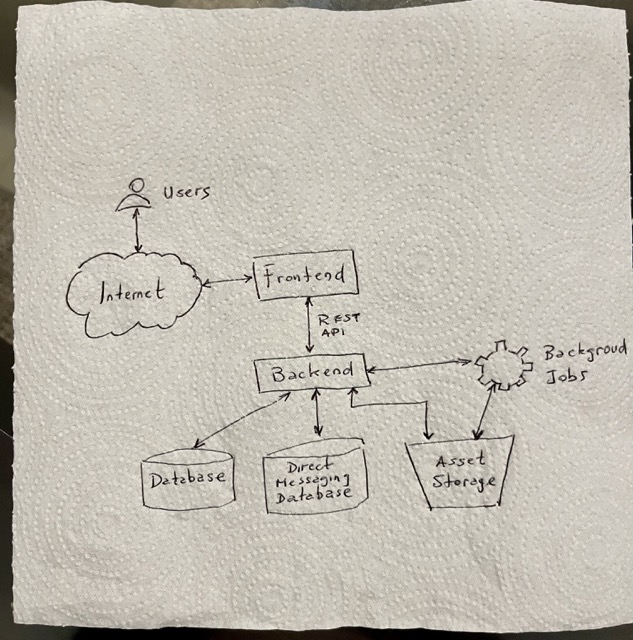 Users
Internet
Frontend
REST
API
Backend
Backgroud
Jobs
Database
Direct
Messaging
Database
Asset
Storage